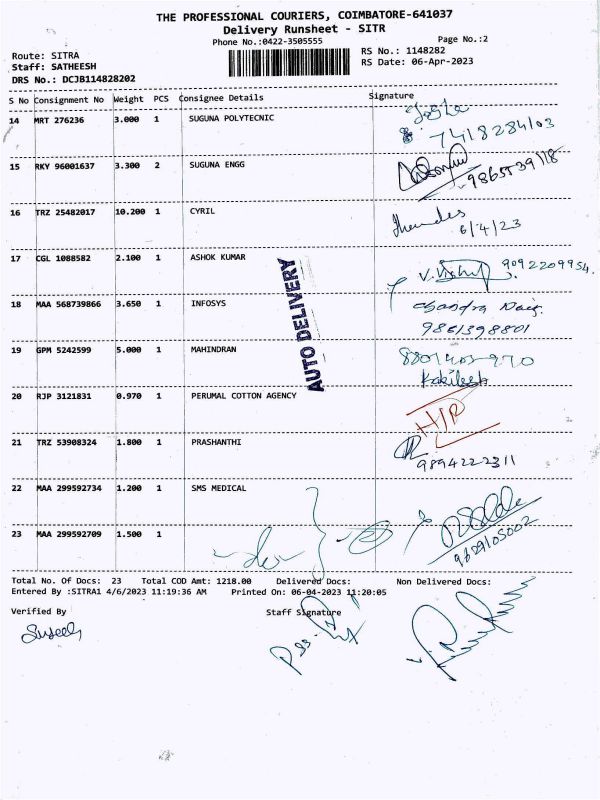 THE PROFESSIONAL COURIERS, COIMBATORE-641037
Delivery Runsheet - SITR
Phone No.:0422-3505555
Page No.:2
Route: SITRA
RS No.: 1148282
Staff: SATHEESH
RS Date: 06-Apr-2023
DRS No.: DCJB114828202
S No Consignment No Weight PCS Consignee Details Signature
14 MRT 276236 3.000 1 SUGUNA POLYTECNIC
7418284103
15 RKY 96001637 3.300 2 SUGUNA ENGG
9865539118
16 TRZ 25482017 10.200 1 CYRIL
6/4/23
17 CGL 1088582 2.100 1 ASHOK KUMAR
9092209954.
18 MAA 568739866 3.650 1 INFOSYS
Chandra
9861398801
19 GPM 5242599 5.000 1 MAHINDRAN
20 RJP 3121831 0.970 1 PERUMAL COTTON AGENCY
21 TRZ 53908324 1.800 1 PRASHANTHI
9894222311
22 MAA 299592734 1.200 1 SMS MEDICAL
23 MAA 299592709 1.500 1
AUTO DELIVERY
Total No. Of Docs: 23 Total COD Amt: 1218.00 Delivered Docs: Non Delivered Docs:
Entered By :SITRA1 4/6/2023 11:19:36 AM Printed On: 06-04-2023 11:20:05
Verified By Staff Signature